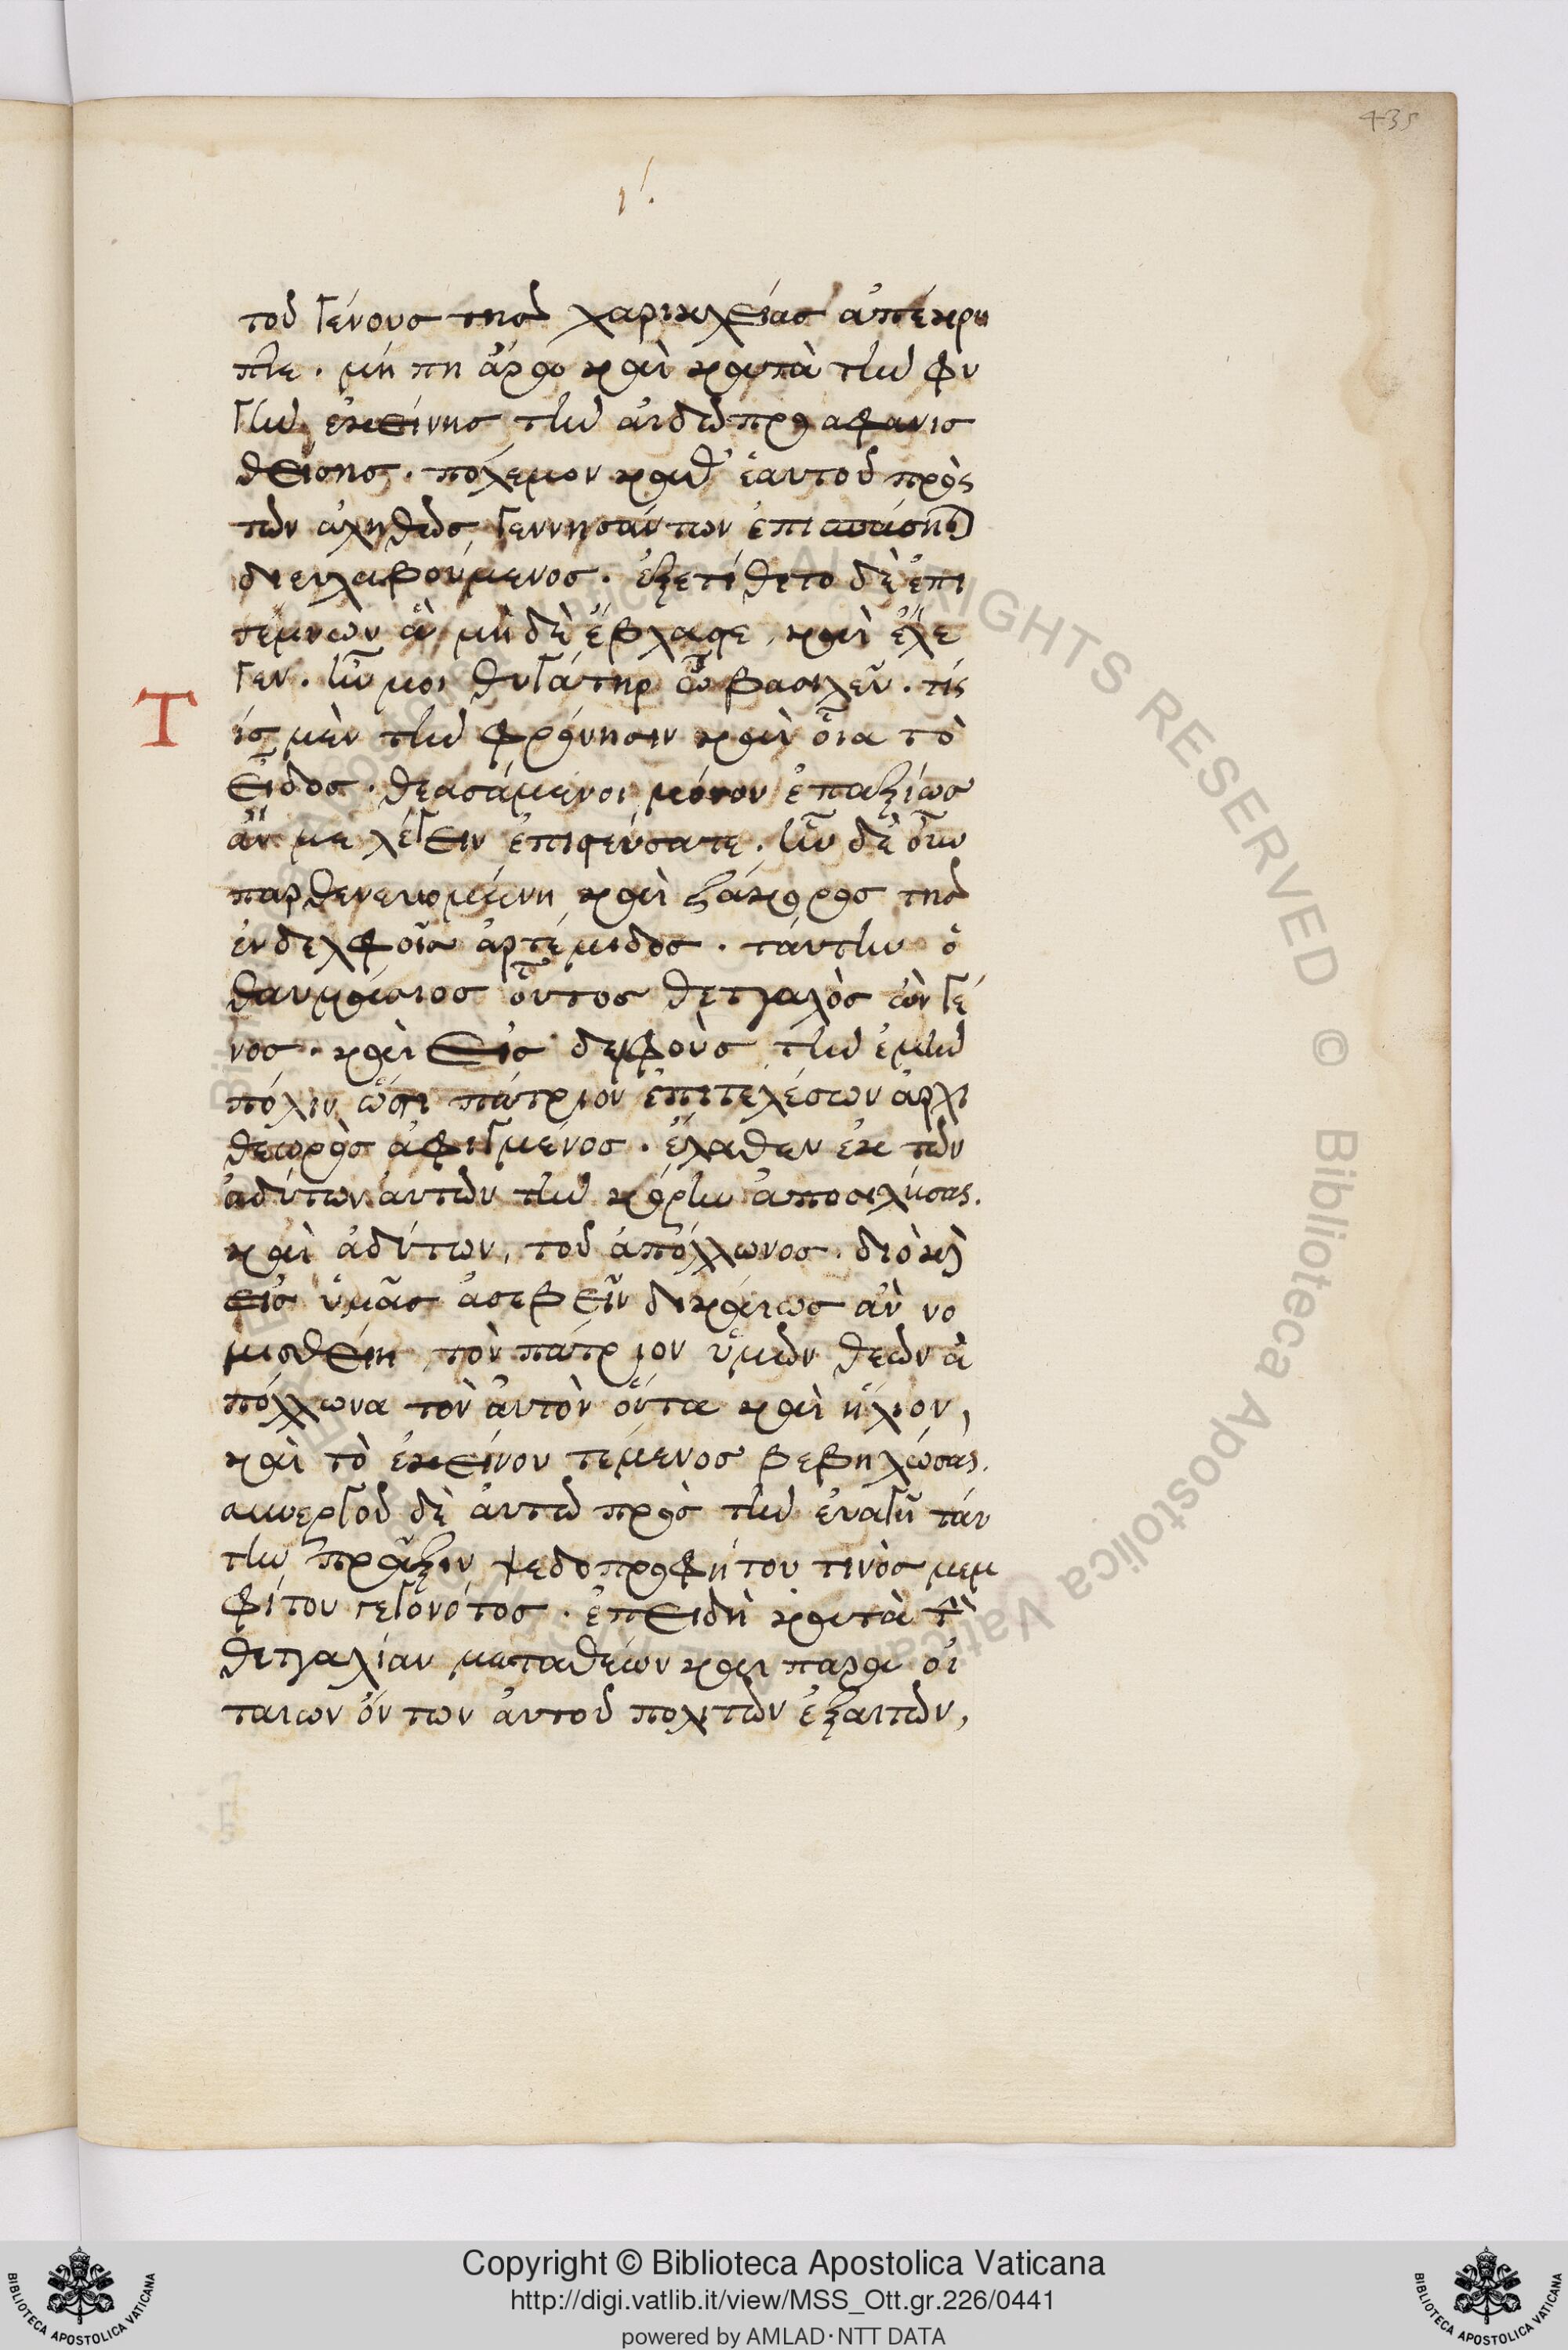 435
ι΄.
τοῦ γένους τῆς χαρικλείας ἀπέκρυ
πτε. μή πη ἄρα καὶ κατὰ τὴν φυ
γὴν ἐκείνης τὴν αἰδῶ προαφανισ
θείσης. πόλεμον καθ' ἑαυτοῦ πρὸς
τῶν ἀληθῶς γεννησάντων ἐπισπάσηται
διευλαβούμενος. ἐξετίθετο δὲ ἐπι
τέμνων ἃ μηδὲν ἔβλαπτε, καὶ ἔλε
γεν. ἦν μοι θυγάτηρ ὦ βασιλεῦ. τίς
Τ
ις μὲν τὴν φρόνησιν καὶ οἵα τὸ
εἶδος. θεασάμενοι μόνον ἐπαξίως
ἄν με λέγειν ἐπιστεύσατε. ἦν δὲ οὖν
παρθενευομένη καὶ ζάκορος τῆς
ἐν δελφοῖς ἀρτέμιδος. ταύτην ὁ
θαυμάσιος οὗτος θετταλὸς ὢν γέ
νος. καὶ εἰς δελφοὺς τὴν ἐμὴν
πόλιν ὥς τι πάτριον ἐπιτελέσων ἀρχι
θεωρὸς ἀφιγμένος. ἔλαθεν ἐκ τῶν
ἀδύτων αὐτῶν τὴν κόρην ἀποσυλήσας.
καὶ ἀδύτων, τοῦ ἀπόλλωνος. διὸ καὶ
εἰς ὑμᾶς ἀσεβεῖν δικαίως ἂν νο
μισθείη τὸν πάτριον ὑμῶν θεὸν ἀ
πόλλωνα τὸν αὐτὸν ὄντα καὶ ἥλιον,
καὶ τὸ ἐκείνου τέμενος βεβηλώσας.
συνεργοῦ δὲ αὐτῷ πρὸς τὴν ἐναγῆ ταύ
την πρᾶξιν ψεδοπροφήτου τινὸς μεμ
φίτου γεγονότος. ἐπειδὴ κατὰ τὴν
θετταλίαν μεταθέων καὶ παρὰ οἰ
ταίων ὄντων αὐτοῦ πολιτῶν ἐξαιτῶν,
Copyright © Biblioteca Apostolica Vaticana
http://digi.vatlib.it/view/MSS_Ott.gr.226/0441
powered by AMLAD·NTT DATA